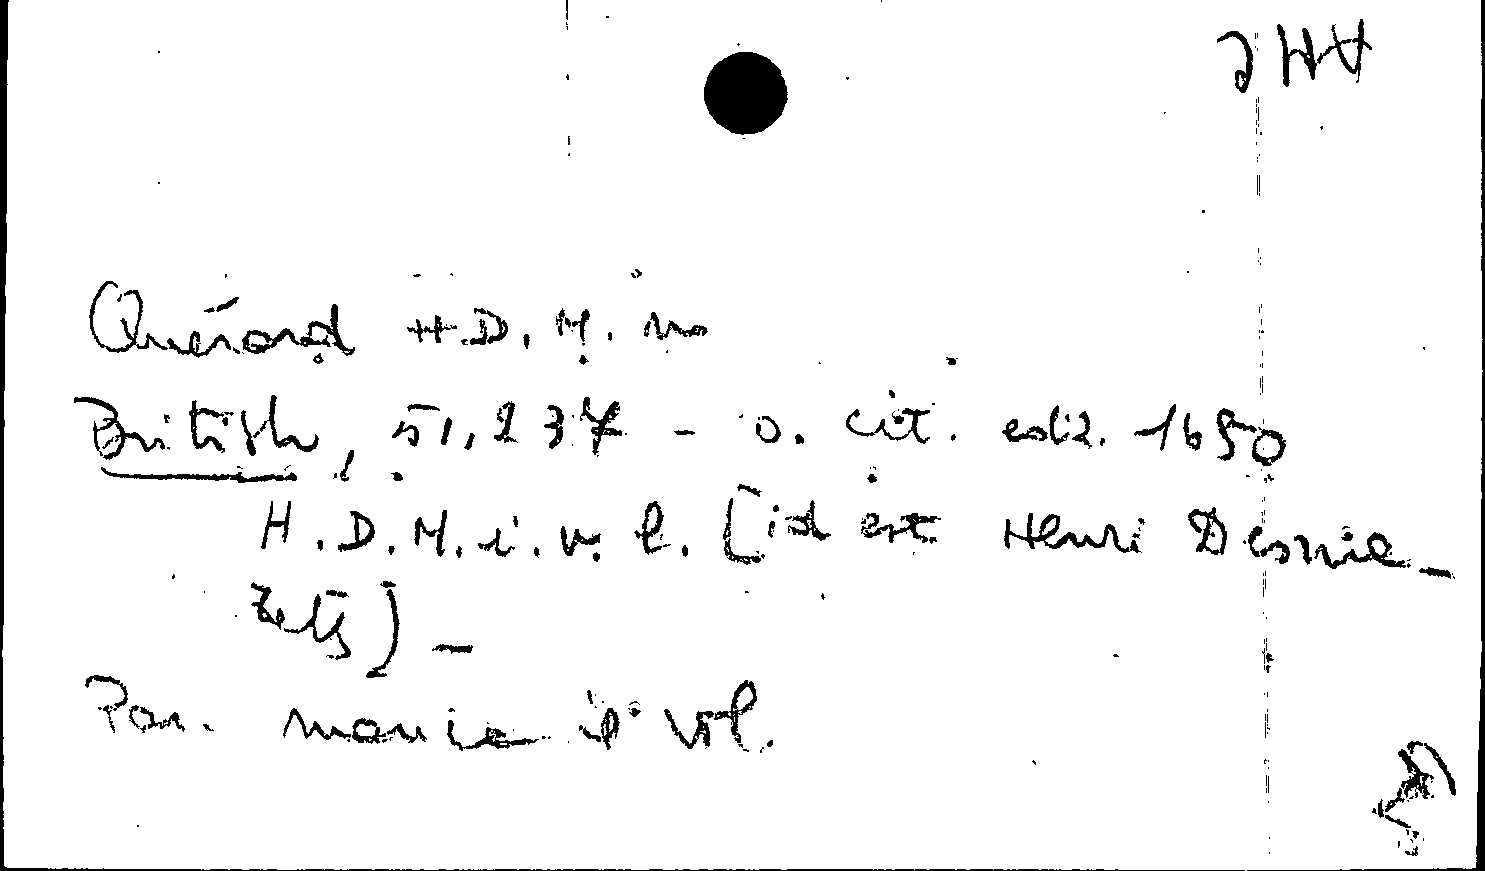 Quérard H.D.M. no
British, 51,237 - o. cit. ediz. 1650
H.D.M.i.v.l. [id est Henri Desma-
rets] -
Par. manca il vol.